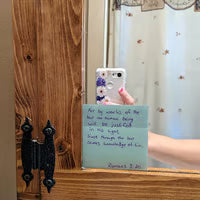 For by works of the
law no human being
will be justified
in his sight,
since through the law
comes knowledge of sin.
Romans 3:20